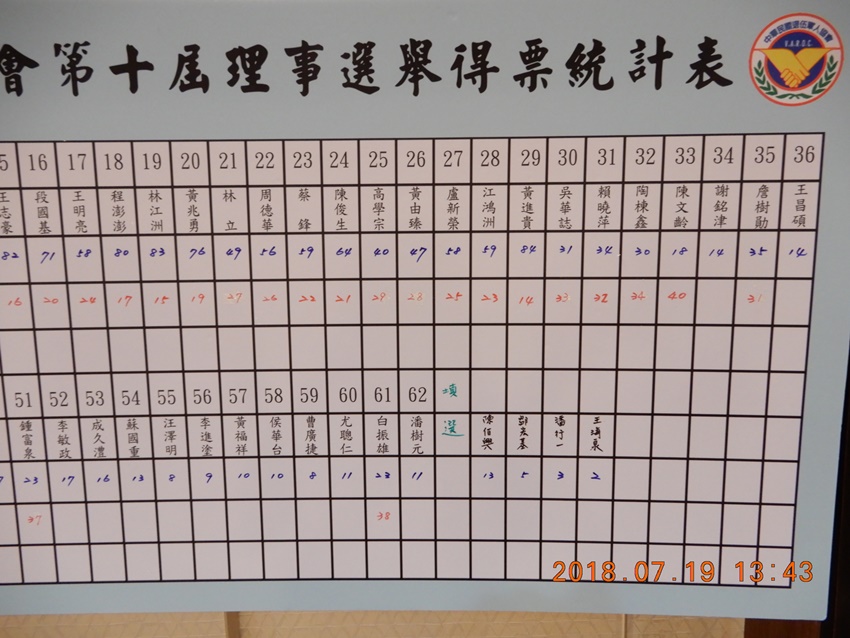 會第十屆理事選舉得票統計表
中華民國退伍軍人協會
V.A.R.O.C.
5 16 17 18 19 20 21 22 23 24 25 26 27 28 29 30 31 32 33 34 35 36
王志豪 段國基 王明亮 程澎澎 林江洲 黃兆勇 林立 周德華 蔡鋒 陳俊生 高學宗 黃由臻 盧新榮 江鴻洲 黃進貴 吳華誌 賴曉萍 陶棟鑫 陳文齡 謝銘津 詹樹勛 王昌碩
82 71 58 80 83 76 49 56 59 64 40 47 58 59 84 31 34 30 18 14 35 14
16 20 24 17 15 19 27 26 22 21 29 28 25 23 14 33 32 34 40 31
51 52 53 54 55 56 57 58 59 60 61 62 項選
鍾富泉 李敏政 成久澧 蘇國重 汪澤明 李進塗 黃福祥 侯華台 曹廣捷 尤聰仁 白振雄 潘樹元 陳佰興
7 23 17 16 13 8 9 10 10 8 11 23 11 13 5 3 2
37 38
2018.07.19 13:43